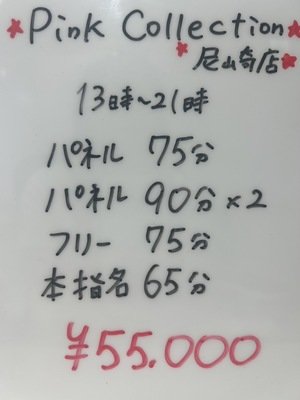 Pink Collection
尼崎店
13時~21時
パネル 75分
パネル 90分×2
フリー 75分
本指名 65分
¥55.000